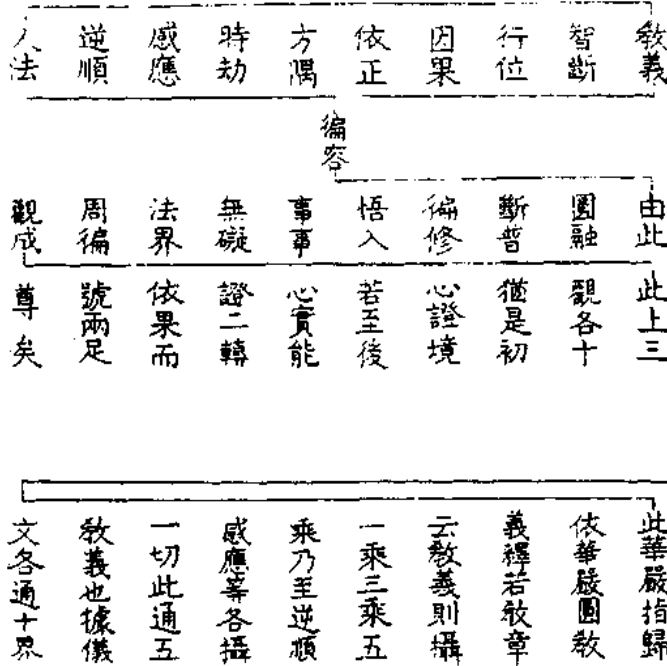 教義
智斷
行位
因果
依正
方隅
時劫
感應
逆順
人法
徧容
由此
圓融
斷普
徧修
悟入
事事
無礙
法界
周徧
觀成
此上三
觀各十
猶是初
心證境
若至後
心實能
證二轉
依果而
號兩足
尊矣
此華嚴指歸
依華嚴圓教
義釋若教章
云教義則攝
一乘三乘五
乘乃至逆順
感應等各攝
一切此通五
教義也據儀
文各通十界